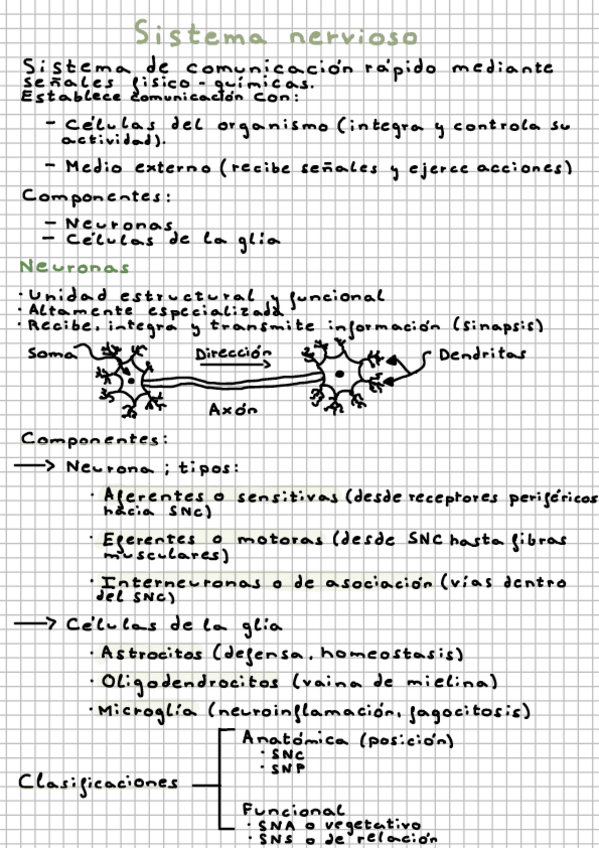 Sistema nervioso
Sistema de comunicación rápido mediante
señales físico-químicas.
Establece comunicación con:
- Células del organismo (integra y controla su
actividad).
- Medio externo (recibe señales y ejerce acciones)
Componentes:
- Neuronas
- Células de la glía
Neuronas
· Unidad estructural y funcional
· Altamente especializada
· Recibe, integra y transmite información (sinapsis)
Soma Dirección Dendritas
Axón
Componentes:
→ Neurona ; tipos:
· Aferentes o sensitivas (desde receptores periféricos
hacia SNC)
· Eferentes o motoras (desde SNC hasta fibras
musculares)
· Interneuronas o de asociación (vías dentro
del SNC)
→ Células de la glía
· Astrocitos (defensa, homeostasis)
· Oligodendrocitos (vaina de mielina)
· Microglía (neuroinflamación, fagocitosis)
Anatómica (posición)
· SNC
· SNP
Clasificaciones
Funcional
· SNA o vegetativo
· SNS o de relación